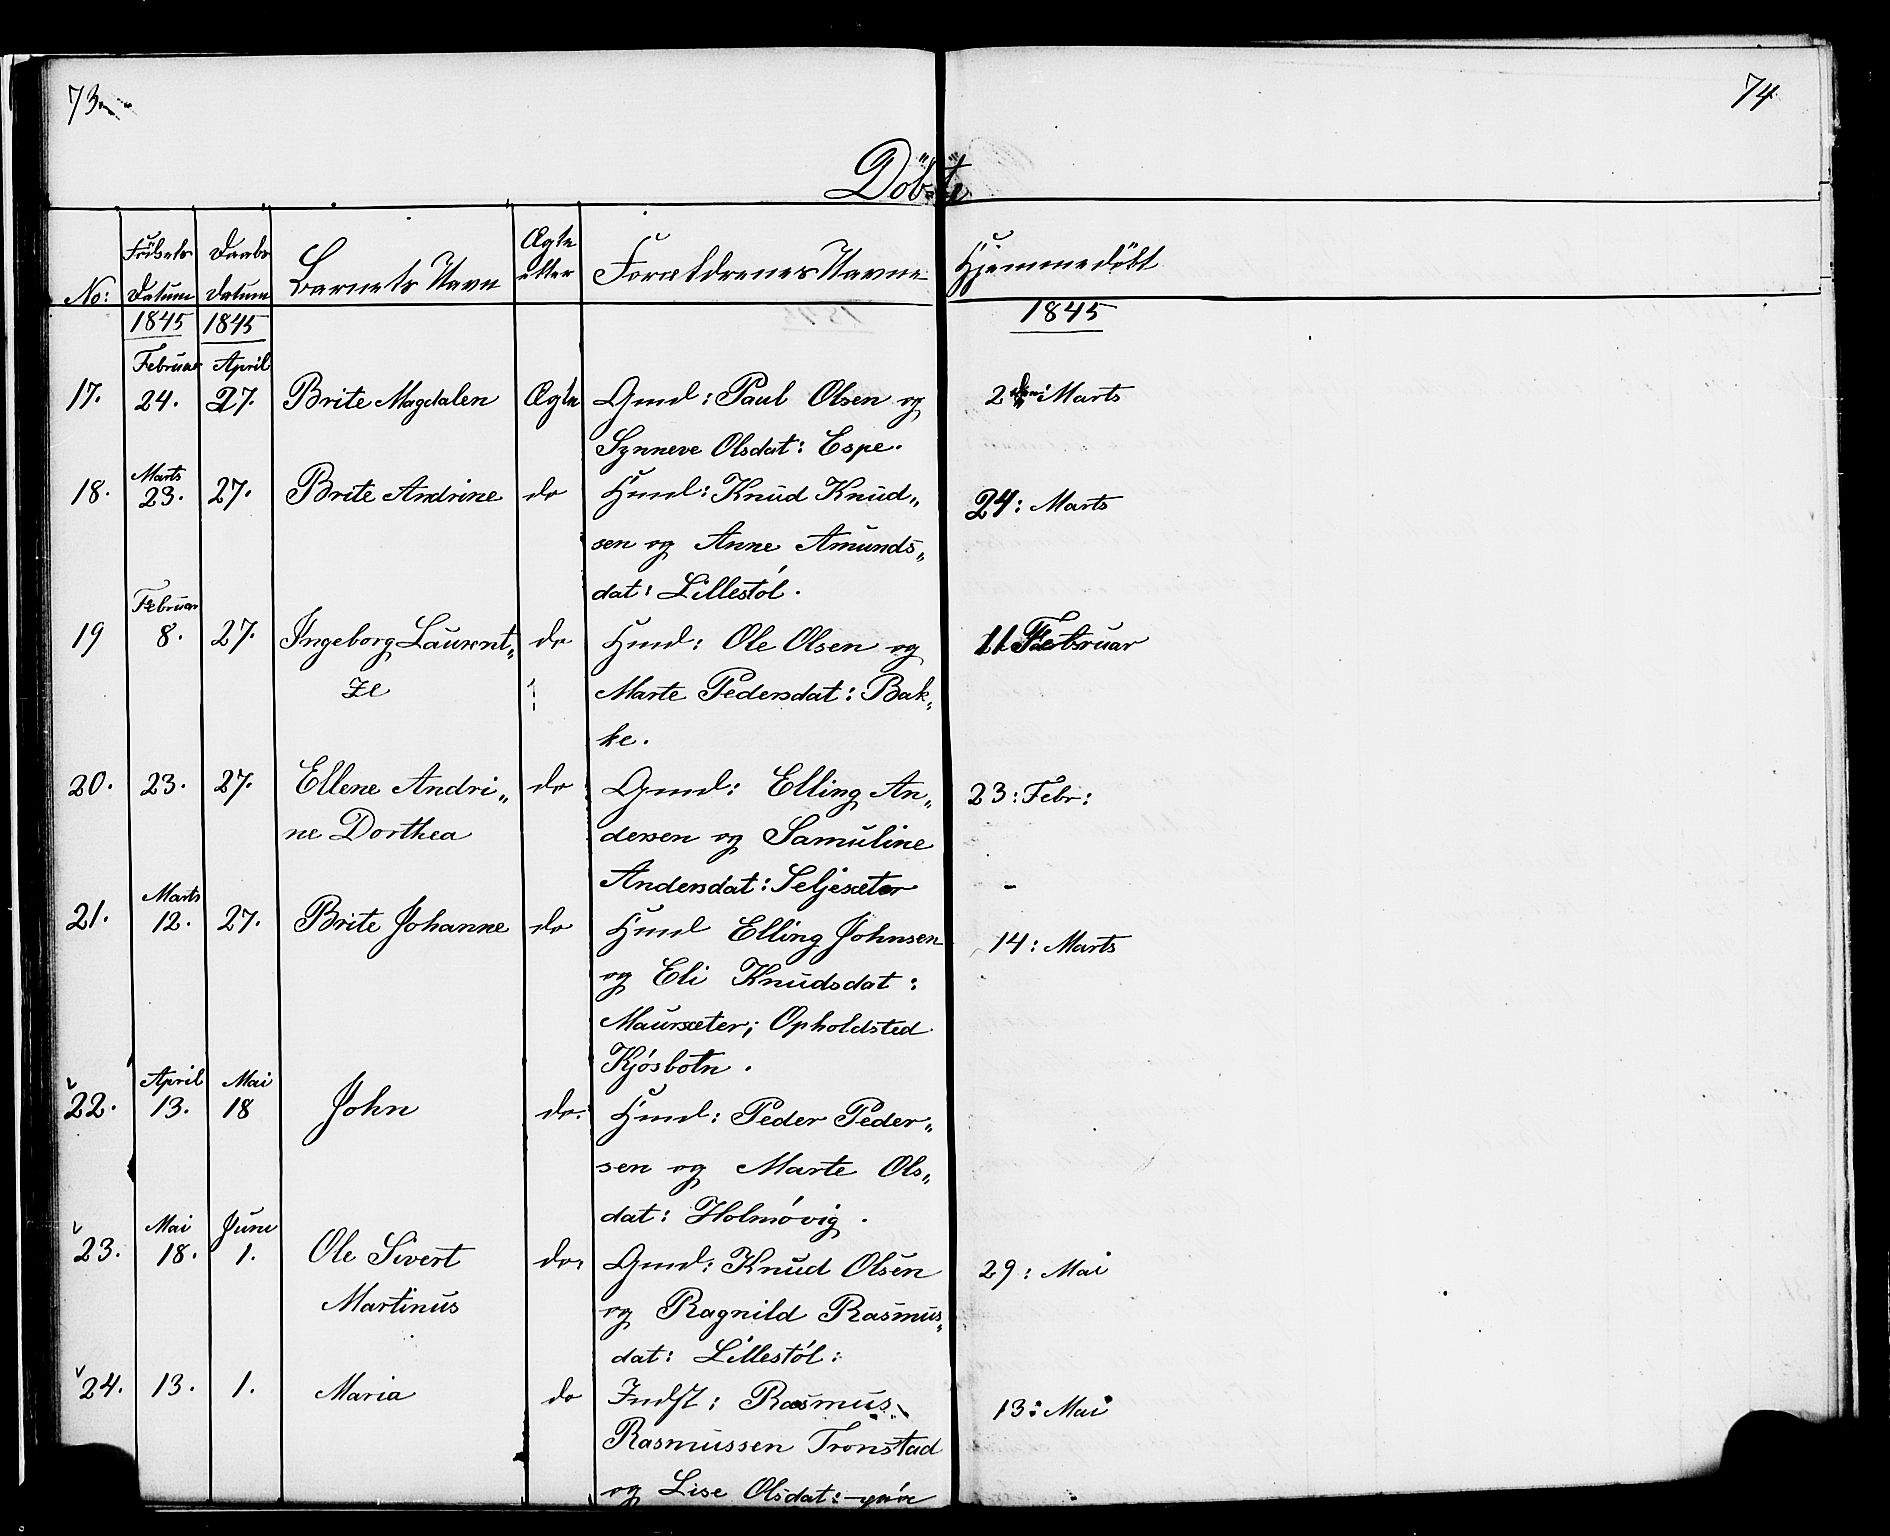 73.
74
Döbte
No:
Födsels Datum
Daabs Datum
Barnets Navn
Ægte etter
Forældrenes Navne
Hjemmedöbt
1845 1845 1845
Februar April
17. 24. 27. Brite Magdalen Ægte Gmd: Paul Olsen og 2den: Marts
Synneve Olsdat: Espe.
Marts
18. 23. 27. Brite Andrine do Hmd: Knud Knud„ 24: Marts
sen og Anne Amunds„
dat: Lillestøl.
Februar
19 8. 27. Ingeborg Laurent„ do Hmd: Ole Olsen og 11 Februar
ze Marte Pedersdat: Bak„
ke.
20. 23. 27. Ellene Andri„ do Gmd: Elling An„ 23: Febr:
ne Dorthea dersen og Samuline
Andersdat: Seljesæter
Marts
21. 12. 27. Brite Johanne do Hmd Elling Johnsen 14: Marts
og Eli Knudsdat:
Maursæter; Opholdsted
Kjøsbotn.
April Mai
22. 13. 18 John do: Hmd: Peder Peder„
sen og Marte Ols„
dat: Holmøvig.
Mai Juni
23. 18. 1. Ole Sivert do. Gmd: Knud Olsen 29: Mai
Martinus og Ragnild Rasmus„
dat: Lillestøl:
24. 13. 1. Maria do Indst: Rasmus 13: Mai
Rasmussen Tronstad
og Lise Olsdat: